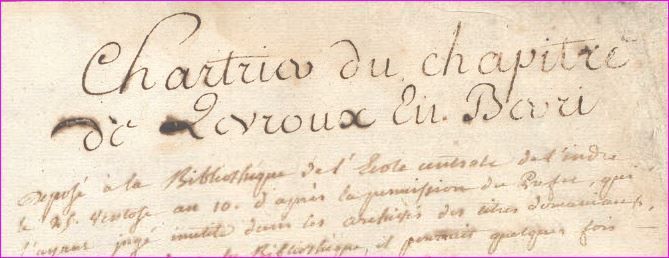 Chartrier du chapitre
de Levroux En Berri
deposé à la Bibliothèque de l'Ecole centrale de l'indre
le 25. Ventose an 10. d'après la permission du Prefet, qui
l'ayant jugé inutile dans les archives des titres domaniaux,
la Bibliothèque, il pourrait quelques fois